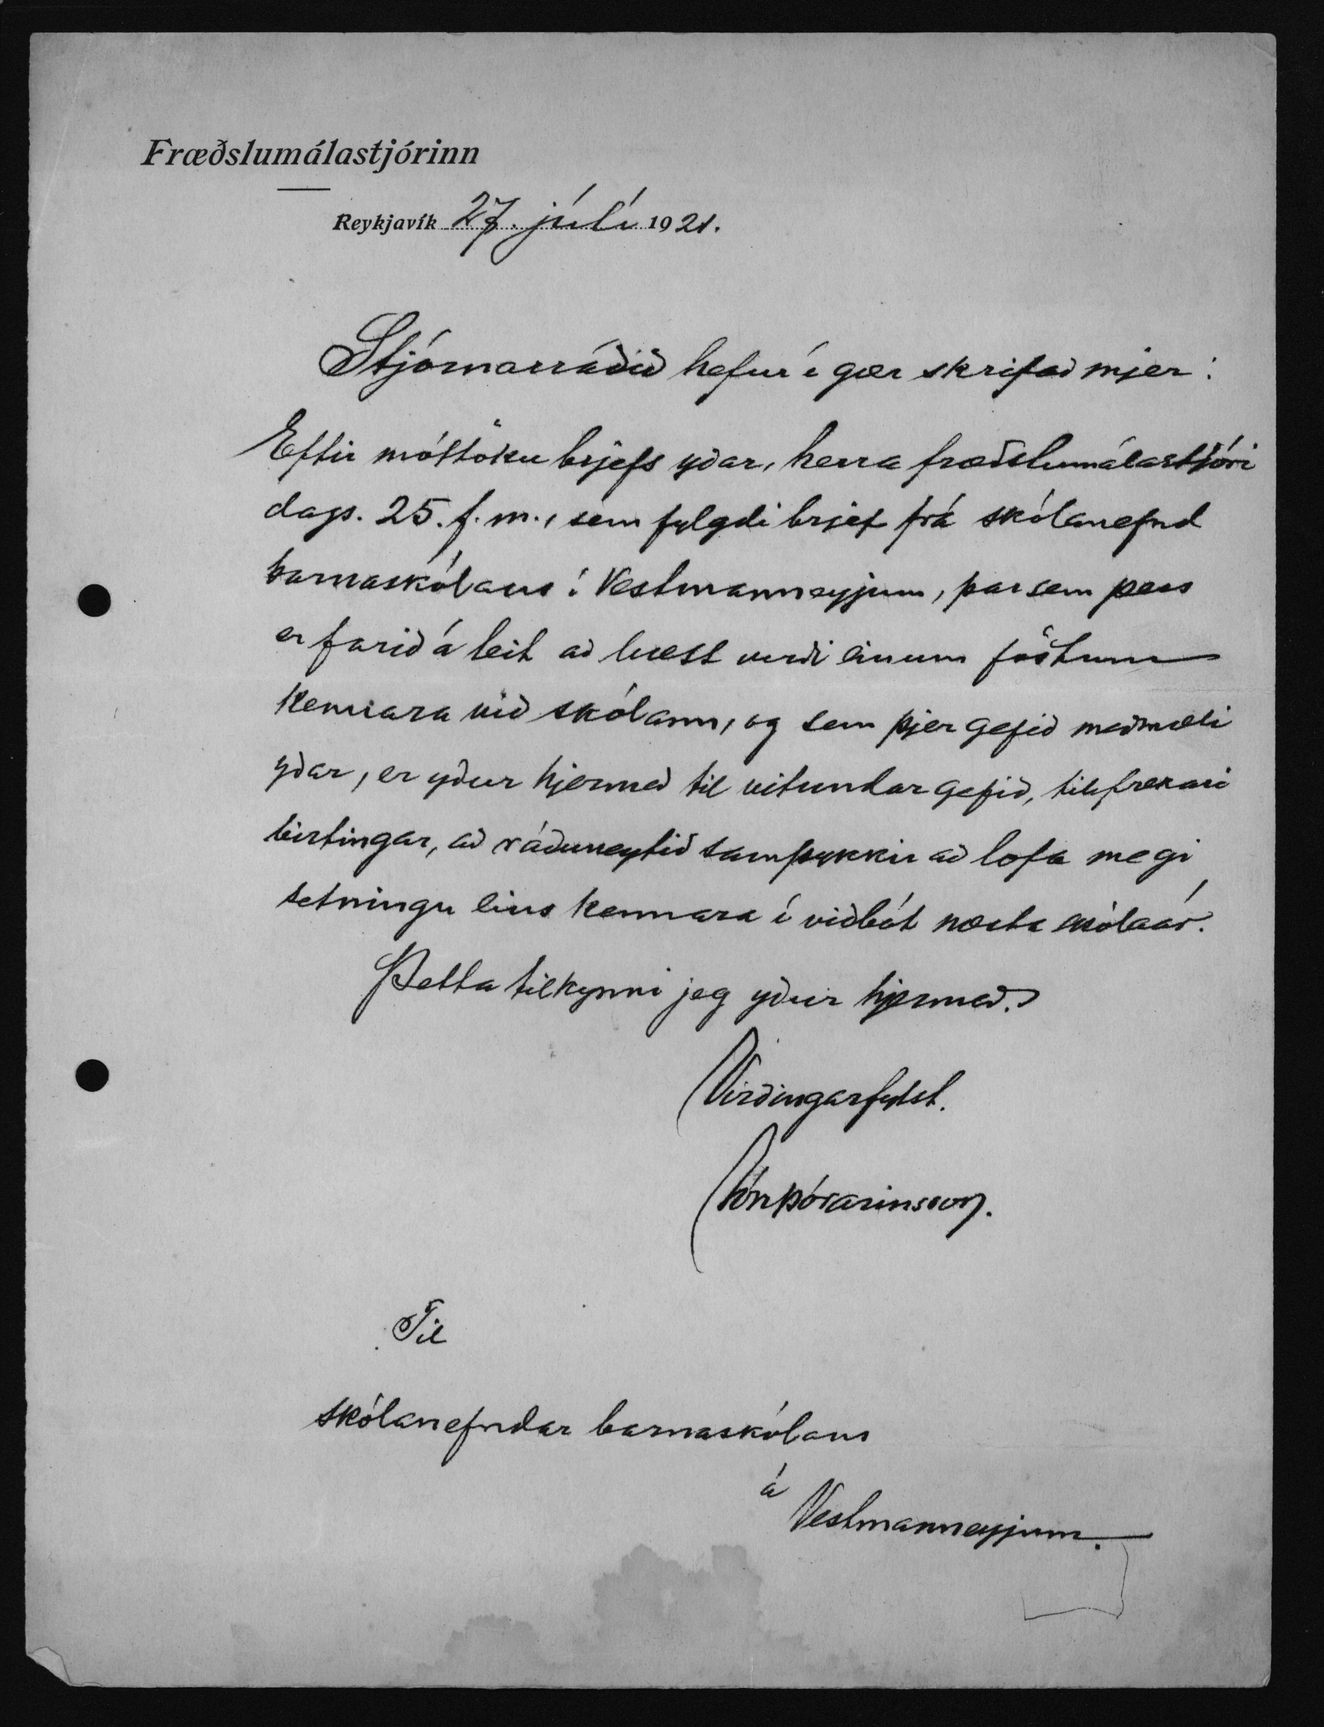 Fræðslumálastjórinn
Reykjavík 27. júlí 1921.
Stjórnarráðið hefur í gær skrifað mjer:
Eftir móttöku brjefs yðar, herra fræðslumálastjóri
dags. 25. f. m., sem fylgdi brjef frá skólanefnd
barnaskólans í Vestmannaeyjum, þar sem þess
er farið á leit að bætt verði einum föstum
kennara við skólann, og sem þjer gefið meðmæli
yðar, er yður hjermeð til vitundar gefið, til frekari
birtingar, að ráðuneytið samþykkir að lofa megi
setningu eins kennara í viðbót næsta skólaár.
Þetta tilkynni jeg yður hjermeð.
Virðingarfylst.
Jón Þórarinsson.
Til
skólanefndar barnaskólans
á
Vestmannaeyjum.